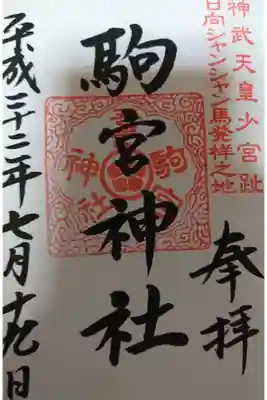 神武天皇少宮趾
日向シャンシャン馬発祥之地
奉拝
駒宮神社
平成二十二年七月十九日